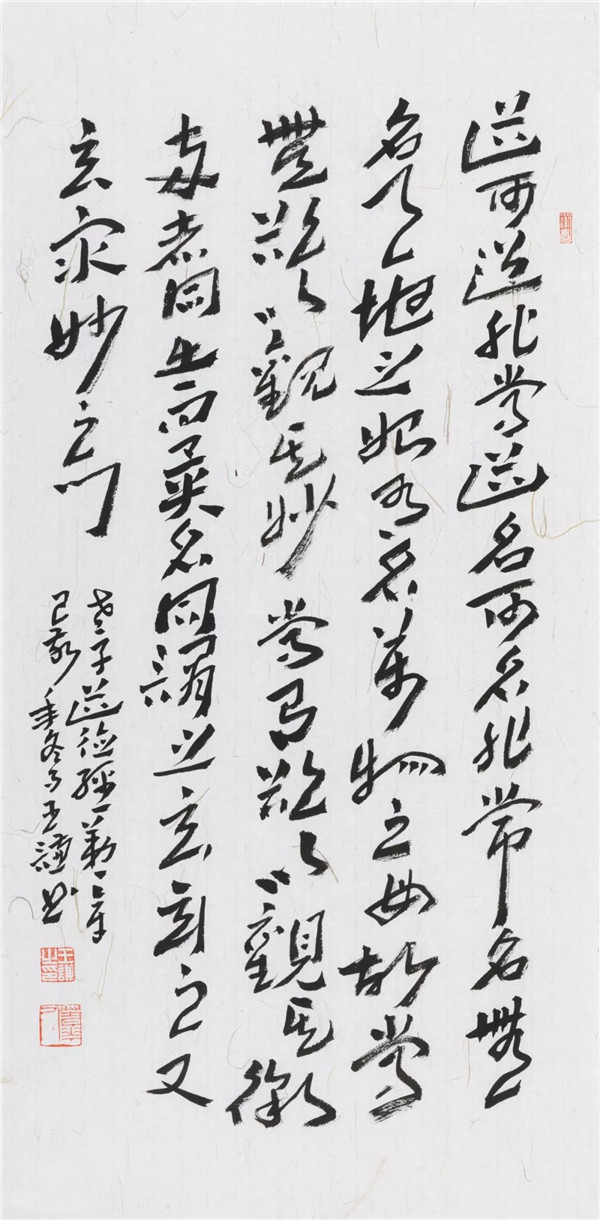 道可道非常道名可名非常名無
名天地之始有名萬物之母故常
無欲以觀其妙常有欲以觀其徼
兩者同出而異名同謂之玄玄之又
玄眾妙之門
老子道德經第一章
己亥年冬月王謙書
王謙之印